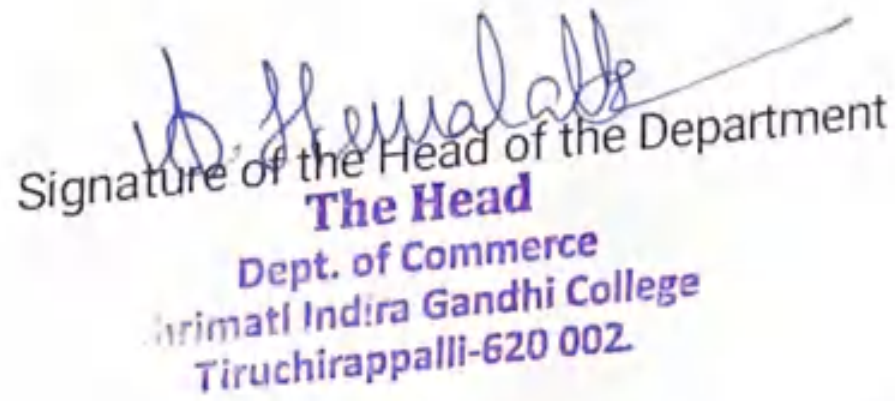 Hemalatha
Signature of the Head of the Department
The Head
Dept. of Commerce
Shrimati Indira Gandhi College
Tiruchirappalli-620 002.